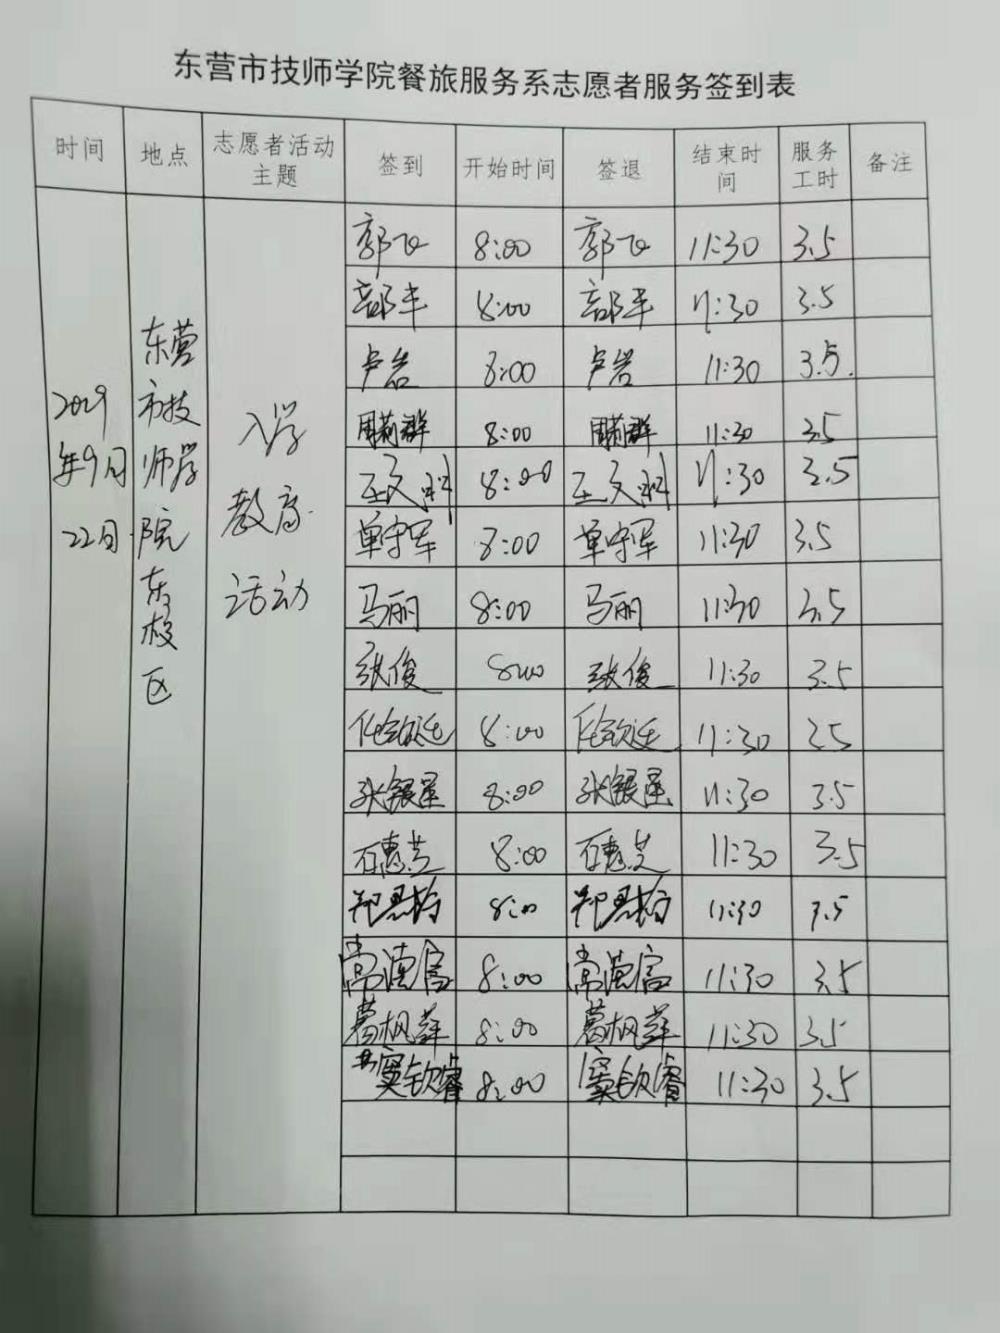 东营市技师学院餐旅服务系志愿者服务签到表
时间 地点 志愿者活动主题 签到 开始时间 签退 结束时间 服务工时 备注
2019年9月22日
东营市技师学院东校区
入学教育活动
郭飞 8:00 郭飞 11:30 3.5
8:00 11:30 3.5
卢岩 8:00 卢岩 11:30 3.5
周莉群 8:00 周莉群 11:30 3.5
8:00 11:30 3.5
单守军 8:00 单守军 11:30 3.5
马丽 8:00 马丽 11:30 3.5
张俊 8:00 张俊 11:30 3.5
任钦廷 8:00 任钦廷 11:30 3.5
张银星 8:00 张银星 11:30 3.5
石惠芝 8:00 石惠芝 11:30 3.5
8:00 11:30 3.5
常漣富 8:00 常漣富 11:30 3.5
葛枫萍 8:00 葛枫萍 11:30 3.5
窦钦睿 8:00 窦钦睿 11:30 3.5